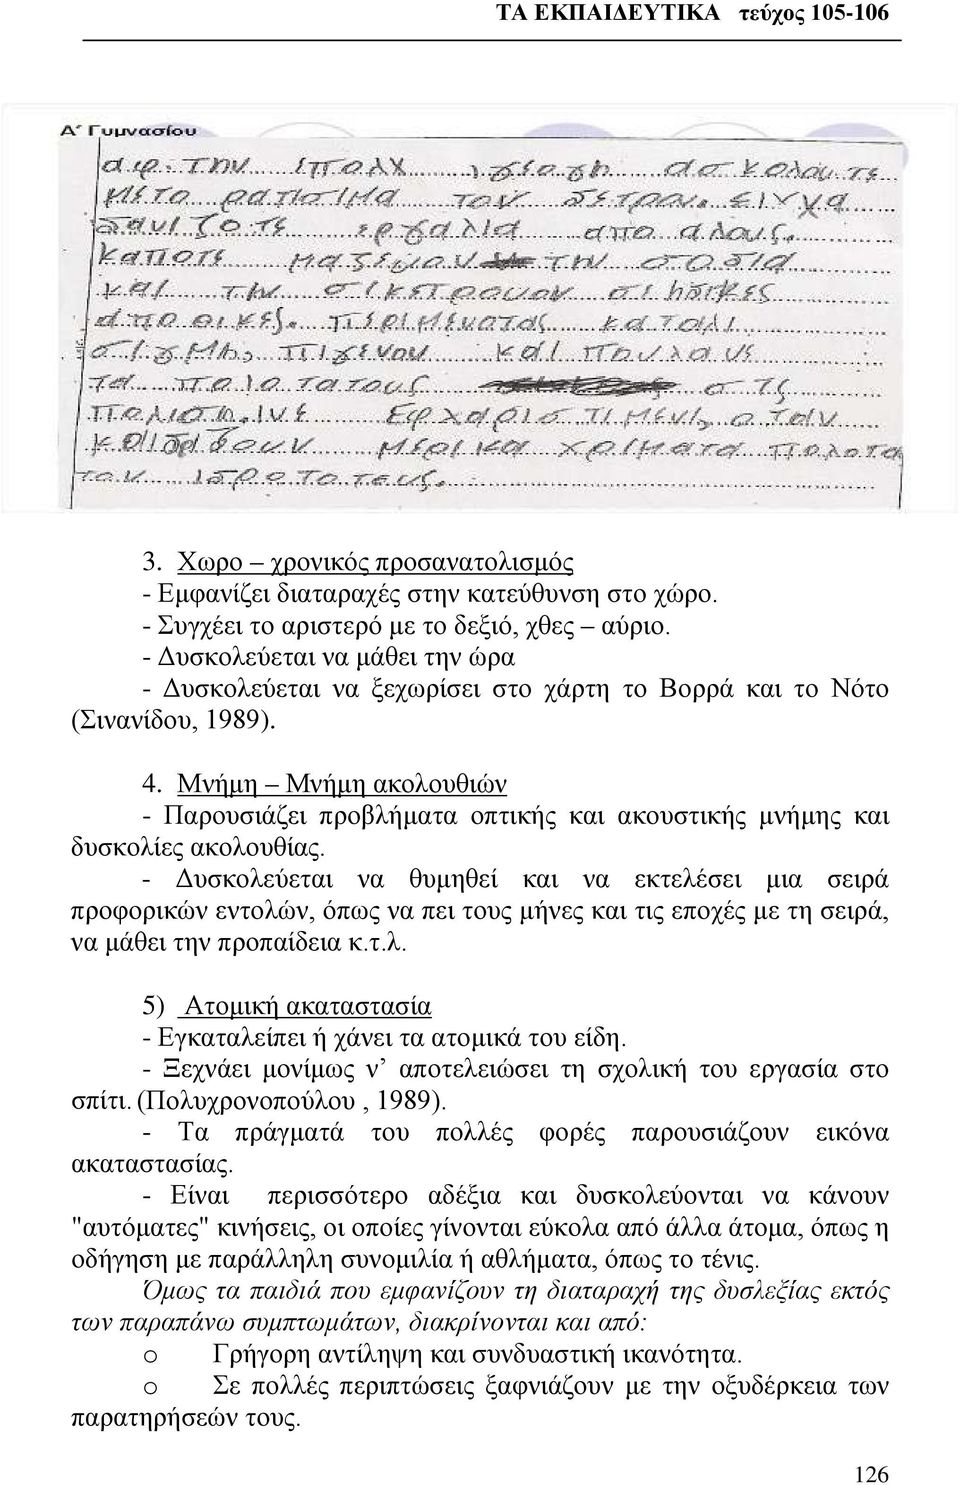 ΤΑ ΕΚΠΑΙΔΕΥΤΙΚΑ τεύχος 105-106
Α΄ Γυμνασίου
αρ. την επολχ ασκολουτε
με το ραπισιμα τον δετρον. ειχα
δανιζοτε εργαλια απο αλους.
καποτε μαζευον την σοδια
και την σικετρουον σι ηδικες
αποθικες. περιμενοτας καταλι
σιγμη, πιγενου και πουλαυε
τα πολοτατους στις
πολιση. ινε εφχαριστιμενι, οταν
κερδιζουν μερικα χριματα πολοτα
τον ιδροτοτευς.
3. Χωρο – χρονικός προσανατολισμός
- Εμφανίζει διαταραχές στην κατεύθυνση στο χώρο.
- Συγχέει το αριστερό με το δεξιό, χθες – αύριο.
- Δυσκολεύεται να μάθει την ώρα
- Δυσκολεύεται να ξεχωρίσει στο χάρτη το Βορρά και το Νότο
(Σινανίδου, 1989).
4. Μνήμη – Μνήμη ακολουθιών
- Παρουσιάζει προβλήματα οπτικής και ακουστικής μνήμης και
δυσκολίες ακολουθίας.
- Δυσκολεύεται να θυμηθεί και να εκτελέσει μια σειρά
προφορικών εντολών, όπως να πει τους μήνες και τις εποχές με τη σειρά,
να μάθει την προπαίδεια κ.τ.λ.
5) Ατομική ακαταστασία
- Εγκαταλείπει ή χάνει τα ατομικά του είδη.
- Ξεχνάει μονίμως ν’ αποτελειώσει τη σχολική του εργασία στο
σπίτι. (Πολυχρονοπούλου , 1989).
- Τα πράγματά του πολλές φορές παρουσιάζουν εικόνα
ακαταστασίας.
- Είναι περισσότερο αδέξια και δυσκολεύονται να κάνουν
"αυτόματες" κινήσεις, οι οποίες γίνονται εύκολα από άλλα άτομα, όπως η
οδήγηση με παράλληλη συνομιλία ή αθλήματα, όπως το τένις.
Όμως τα παιδιά που εμφανίζουν τη διαταραχή της δυσλεξίας εκτός
των παραπάνω συμπτωμάτων, διακρίνονται και από:
o Γρήγορη αντίληψη και συνδυαστική ικανότητα.
o Σε πολλές περιπτώσεις ξαφνιάζουν με την οξυδέρκεια των
παρατηρήσεών τους.
126